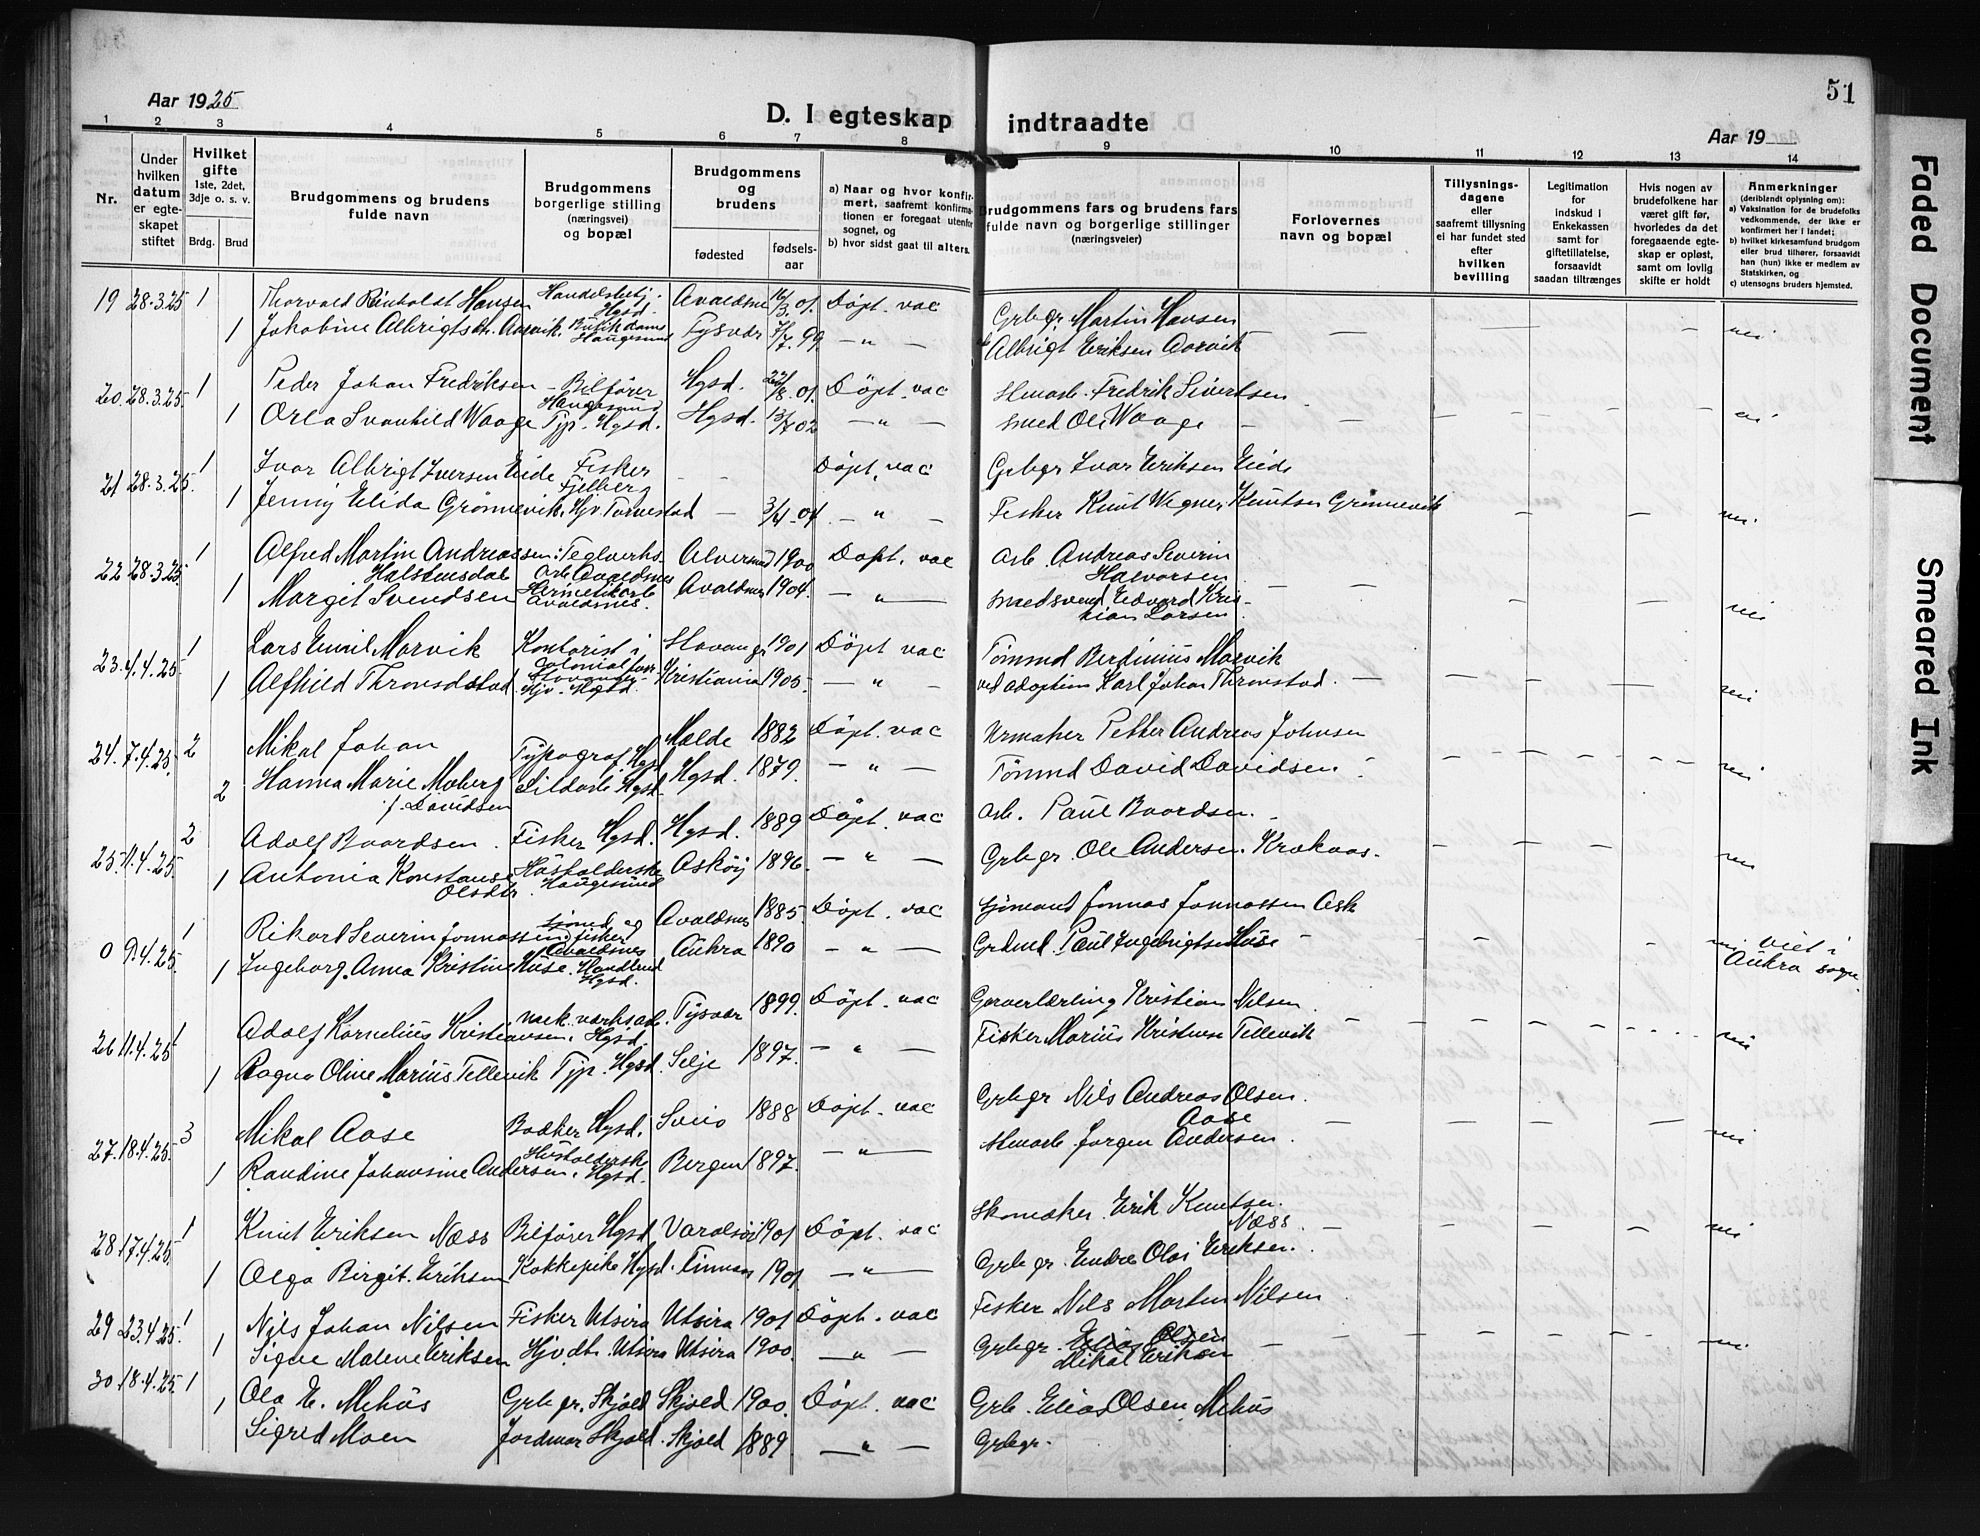 Aar 1925
D. I egteskap indtraadte
51
Aar 19
Faded Document
Smeared Ink
1 2 3 4 5 6 7 8 9 10 11 12 13 14
Nr.
Under hvilken datum er egte-skapet stiftet
Hvilket gifte
1ste, 2det, 3dje o. s. v.
Brdg. Brud
Brudgommens og brudens fulde navn
Brudgommens borgerlige stilling (næringsvei) og bopæl
Brudgommens og brudens
fødested
fødsels-aar
a) Naar og hvor konfir-mert, saafremt konfirma-tionen er foregaat utenfor sognet, og
b) hvor sidst gaat til alters.
Brudgommens fars og brudens fars fulde navn og borgerlige stillinger (næringsveier)
Forlovernes navn og bopæl
Tillysnings-dagene eller saafremt tillysning ei har fundet sted efter hvilken bevilling
Legitimation for indskud i Enkekassen samt for giftetillatelse, forsaavidt saadan tiltrænges
Hvis nogen av brudefolkene har været gift før, hvorledes da det foregaaende egte-skap er opløst, samt om lovlig skifte er holdt
Anmerkninger (deriblandt oplysning om):
a) Vaksination for de brudefolks vedkommende, der ikke er konfirmert her i landet;
b) hvilket kirkesamfund brudgom eller brud tilhører, forsaavidt han (hun) ikke er medlem av Statskirken, og
c) utensogns bruders hjemsted.
19 28.3.25 1 Thorvald Reinholdt Hansen Handelsbetj. Hgsd. Avaldsnes 16/3.01. Döpt. vac Grbgr. Martin Hansen
1 Jakobine Albrigtsdtr. Aarvik. Butikdame Haugesund Tysvær 7/7.99. — " — Albrigt Eriksen Aarvik — — nei
20. 28.3.25. 1 Peder Johan Fredriksen Bilförer Haugesund Hgsd. 22/8.01. Döpt. vac Hmarb. Fredrik Sivertsen
1 Orla Svanhild Waage Tjp. Hgsd. Hgsd. 13/4 02 — " — Smed Ole Waage — — nei
21 28.3.25. 1 Ivar Albrigt Iversen Eide Fisker Fjelberg Döpt. vac Grbgr Ivar Eriksen Eide
1 Jenny Elida Grönnevik. Hjv. Torvestad — 3/4-04. — " — Fisker Knut Wegner Knutsen Grönnevik — — nei.
22 28.3.25. 1 Alfred Martin Andreassen Halstensdal Teglverks. Arb. Avaldsnes Alversund 1900 Döpt. vac Arb. Andreas Severin Halvorsen
1 Margit Svendsen Hermetikarb. Avaldsnes. Avaldsnes 1904. — " — Smedsvend Edvard Kristian Larsen — — nei
23. 4.4.25. 1 Lars Emil Marvik Kontorist i Colonialforr. Stavanger Stavanger 1901 Döpt vac Tömmd Berdinius Marvik
1 Alfhild Thronsdstad Hjv. Hgsd. Kristiania 1905. — " — ved adoption Karl Johan Thronstad. — — nei
24. 7.4.25. 2 Mikal Johan Typograf Hgsd Molde 1882 Döpt. vac Urmaker Petter Andreas Johnsen
2 Hanna Marie Moberg f. Davidsen Sildarb. Hgsd. Hgsd. 1879. — " — Tömmd David Davidsen — — nei
25. 11.4.25. 2 Adolf Baardsen. Fisker Hgsd. Hgsd. 1889 Döpt. vac Arb. Paul Baardsen.
1 Antonia Konstanse Olsdtr. Husholderske Haugesund Asköy 1896. — " — Grbgr. Ole Andersen. Krokaas. — — nei
0 9.4.25. 1 Rikart Severin Jonnassen Sjömd og fisker Avaldsnes Avaldsnes 1885 Döpt. vac Sjömand Jonnas Jonnassen Ask
1 Ingeborg Anna Kristine Huse. Handlend. Hgsd. Aukra 1890 — " — Grdmd Paul Ingebrigtsen Huse — — nei. viet i Aukra sogn.
26 11.4.25 1 Adolf Kornelius Kristiansen. mek. værksarb. Hgsd. Tysvær 1899. Döpt. vac Garverlærling Kristian Nilsen
1 Ragna Oline Marius. Tellevik Tjp. Hgsd. Selje 1897. — " — Fisker Marius Kristense Tellevik — — nei
27. 18.4.25. 3 Mikal Aase Baaker Hgsd. Sveio 1888 Döpt. vac Grbgr Nils Andreas Olsen. Aase
1 Randine Johansine Andersen. Husholderske Hgsd. Bergen 1897. — " — Hmarb. Jørgen Andersen. — — nei
28 17.4.25. 1 Knut Eriksen Næss Bilförer Hgsd Varaldsöi 1901 Döpt. vac Skomaker. Erik Knutsen. Næss.
1 Olga Birgit. Eriksen Kokkepike Hgsd. Finnaas 1901 — " — Grbgr. Endre Olai Eriksen. — — nei
29 23.4.25. 1 Nils Johan Nilsen Fisker Utsira Utsira 1901 Döpt. vac Fisker Nils Martin Nilsen
1 Signe Malene Eriksen Hjv.dt. Utsira Utsira 1900. — " — Grbgr. Elias Olsen Mikal Eriksen — — nei.
30. 18.4.25. 1 Ola E. Mehus Grbgr. Skjold Skjold 1900. Döpt. vac Grb. Elias Olsen Mehus
1 Sigred Moen Jordmor Skjold. Skjold 1889 — " — Grbgr.